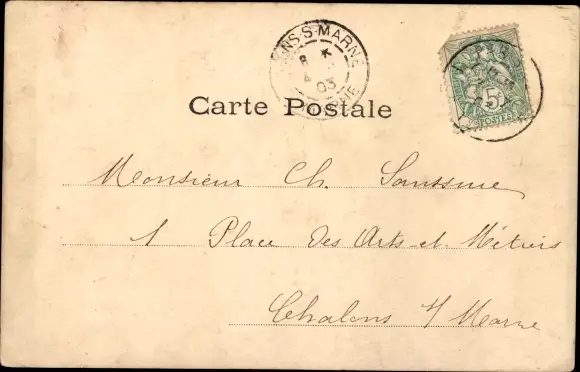 NS-S-MARNE
03
5c
POSTES
Carte Postale
Monsieur Ch. Saussue
1 Place des Arts et Métiers
Chalons s/ Marne